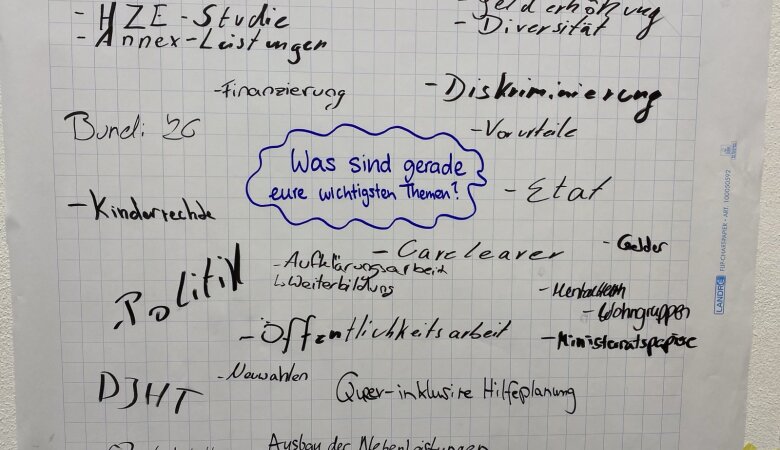 - HZE-Studie
- Annex-Leistungen
- Gelderhöhung
- Diversität
- Finanzierung
- Diskriminierung
- Vorurteile
Bundi 26
Was sind gerade
eure wichtigsten Themen?
- Etat
- Kinderrechte
- Careleaver
- Gelder
- Aufklärungsarbeit
↳ Weiterbildung
Politik
- Wohngruppen
- Öffentlichkeitsarbeit
- Ministeriatspapiere
- Neuwahlen
DJHT
Queer-inklusive Hilfeplanung
Ausbau der Nebenleistungen
LANDRÉ FLIP-CHARTPAPIER • ART. 100050592